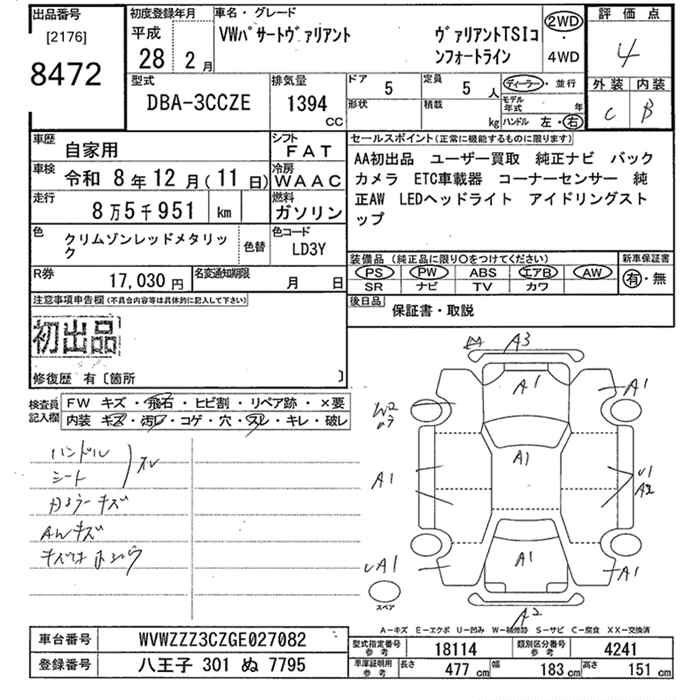 出品番号
[2176]
8472
初度登録年月
平成
28 2月
車名・グレード
VWパサートヴァリアント ヴァリアントTSIコンフォートライン
2WD
・
4WD
評価点
4
外装 内装
C B
型式
DBA-3CCZE
排気量
1394
CC
ドア
5
定員
5 人
形状
積載
kg
ディーラー・並行
モデル年式 年
ハンドル 左・右
車歴
自家用
シフト
FAT
車検
令和 8年 12月(11日)
冷房
WAAC
走行
8万5千951 km
燃料
ガソリン
色
クリムゾンレッドメタリック
色替
色コード
LD3Y
R券
17,030円
名変通知期限
月 日
セールスポイント(正常に機能するものに限ります)
AA初出品 ユーザー買取 純正ナビ バック
カメラ ETC車載器 コーナーセンサー 純
正AW LEDヘッドライト アイドリングスト
ップ
装備品(純正品に限り○をつけてください)
PS PW ABS エアB AW
SR ナビ TV カワ
新車保証書
有・無
後日品
保証書・取説
注意事項申告欄(不具合内容等は具体的に記入して下さい)
初出品
修復歴 有〔箇所 〕
検査員
記入欄
FW キズ・飛石・ヒビ割・リペア跡・×要
内装 キズ・汚レ・コゲ・穴・スレ・キレ・破レ
ハンドル
シート
スレ
AWキズ
A3
A1
A1
W2
A1
A1
U1
A2
A1
A1
A1
A2
スペア
A―キズ E―エクボ U―凹み W―補修跡 S―サビ C―腐食 XX―交換済
車台番号
WVWZZZ3CZGE027082
登録番号
八王子 301 ぬ 7795
型式指定番号
参考
18114
類別区分番号
参考
4241
車庫証明用
参考
長さ
477 cm
幅
183 cm
高さ
151 cm